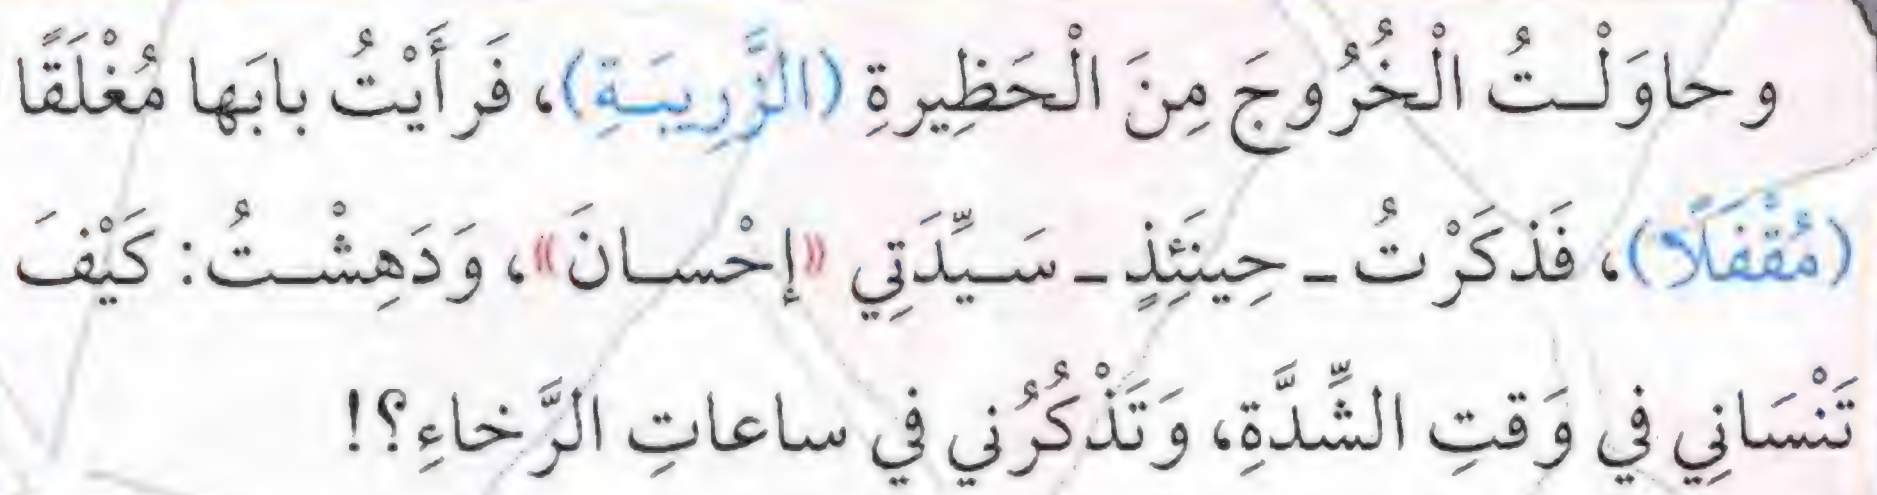 وحاوَلْتُ الْخُرُوجَ مِنَ الْحَظِيرةِ (الزَّرِيبَةِ)، فَرأَيْتُ بابَها مُغْلَقًا
(مُقْفَلًا)، فَذكَرْتُ - حِينَئِذٍ - سَيِّدَتِي «إحْسانَ»، وَدَهِشْتُ: كَيْفَ
تَنْسَانِي في وَقتِ الشِّدَّةِ، وَتَذْكُرُني في ساعاتِ الرَّخاءِ؟!